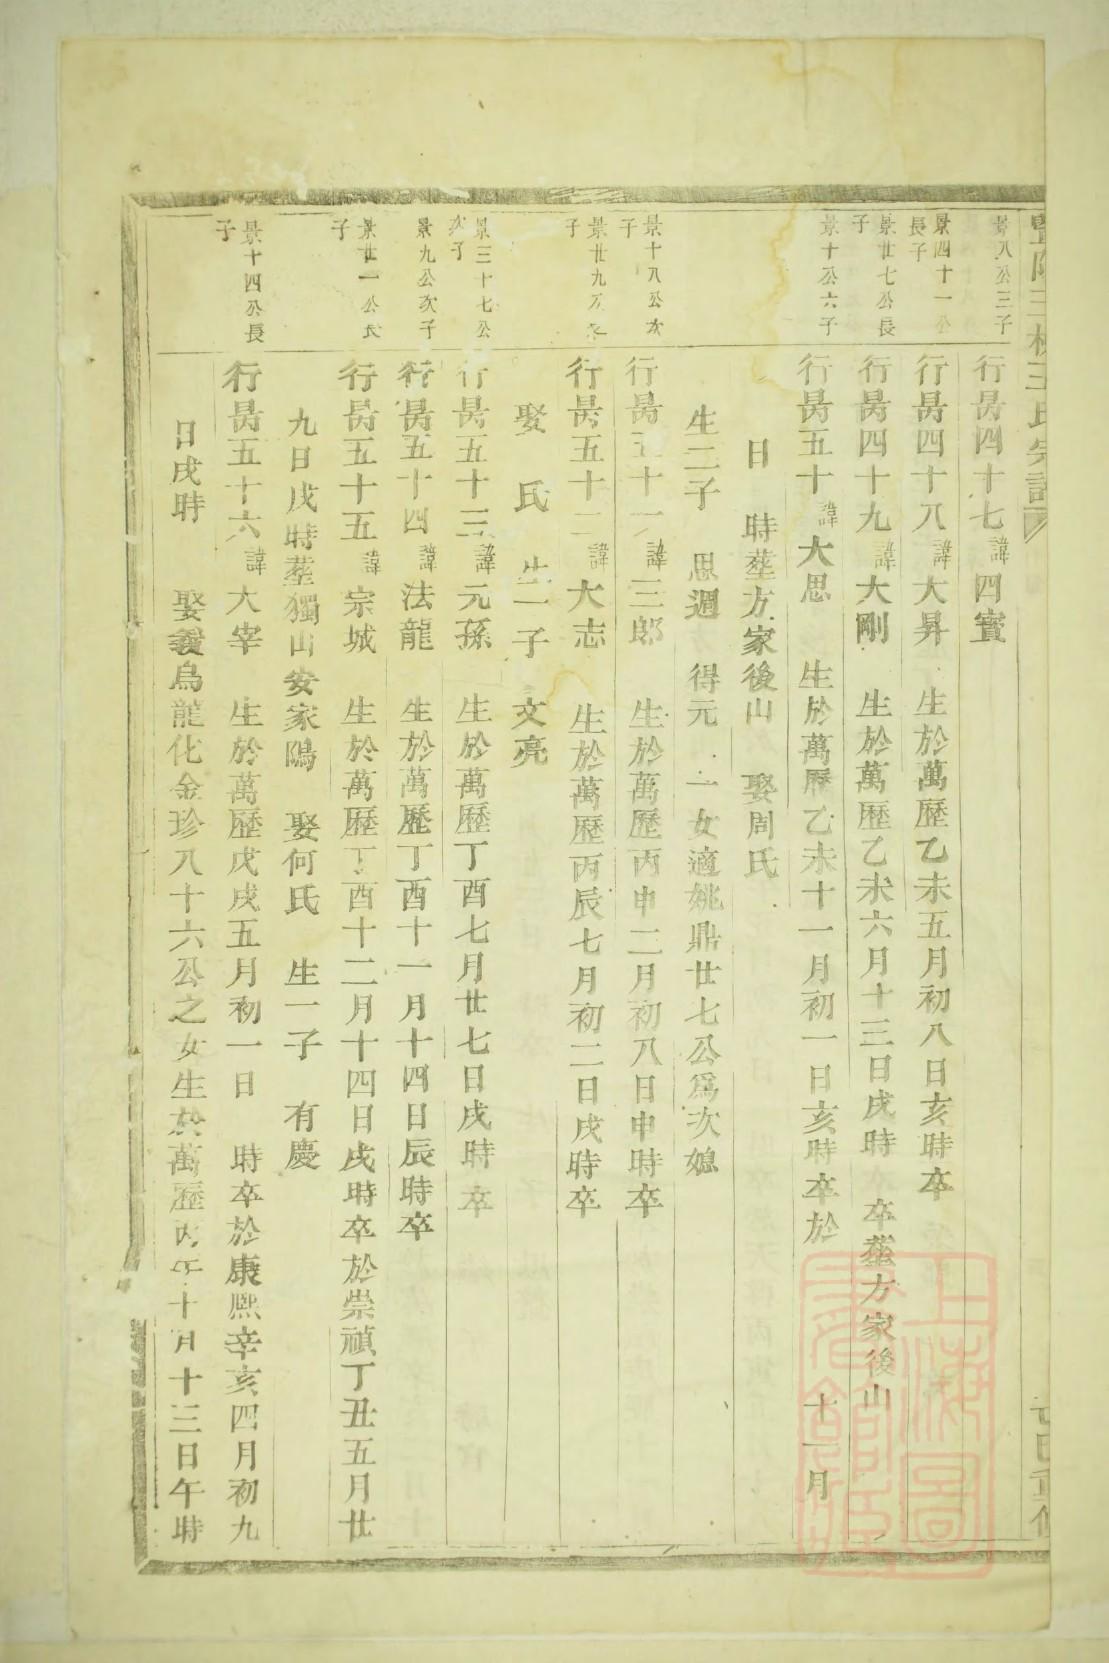 景八公三子
行昺四十七諱四實
景四十一公長子
行昺四十八諱大昇 生於萬歷乙未五月初八日亥時卒
景廿七公長子
行昺四十九諱大剛 生於萬歷乙未六月十三日戌時 卒塟方家後山
景十公六子
行昺五十諱大思 生於萬歷乙未十一月初一日亥時卒於 十一月
日 時塟方家後山 娶周氏
生二子 思週 得元 一女適姚鼎廿七公爲次媳
景十八公次子
行昺五十一諱三郎 生於萬歷丙申二月初八日申時卒
景廿九公 子
行昺五十二諱大志 生於萬歷丙辰七月初二日戌時卒
娶 氏 生一子 文亮
景三十七公次子
行昺五十三諱元孫 生於萬歷丁酉七月廿七日戌時卒
景九公次子
行昺五十四諱法龍 生於萬歷丁酉十一月十四日辰時卒
景廿一公長子
行昺五十五諱宗城 生於萬歷丁酉十二月十四日戌時卒於崇禎丁丑五月廿
九日戌時塟獨山安家隝 娶何氏 生一子 有慶
景十四公長子
行昺五十六諱大宰 生於萬歷戊戌五月初一日 時卒於康熙辛亥四月初九
日戌時 娶義烏龍化金珍八十六公之女生於萬歷丙午十月十三日午時
上海圖書館藏